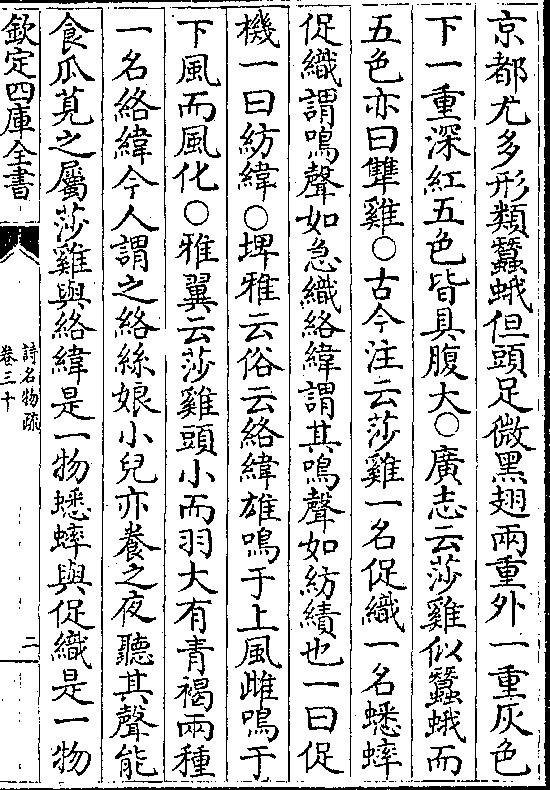 京都尤多形類蠶蛾但頭足微黑翅兩重外一重灰色
下一重深紅五色皆具腹大○廣志云莎雞似蠶蛾而
五色亦曰雙雞○古今注云莎雞一名促織一名蟋蟀
促織謂鳴聲如急織絡緯謂其鳴聲如紡績也一曰促
機一曰紡緯○埤雅云俗云絡緯雄鳴于上風雌鳴于
下風而風化○雅翼云莎雞頭小而羽大有青褐兩種
一名絡緯今人謂之絡絲娘小兒亦養之夜聽其聲能
食瓜莧之屬莎雞與絡緯是一物蟋蟀與促織是一物
欽定四庫全書
詩名物疏
卷三十
二